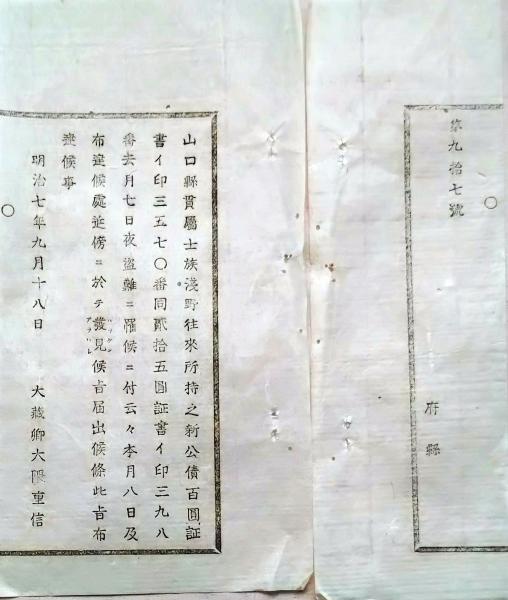 第九拾七號
府縣
山口縣貫屬士族淺野往來所持之新公債百圓証
書イ印三五七〇番同貳拾五圓証書イ印三九八
番去月七日夜盜難ニ罹候ニ付云々本月八日及
布達候處近傍ニ於テ發見候旨届出候條此旨布
達候事
明治七年九月十八日
大藏卿大隈重信